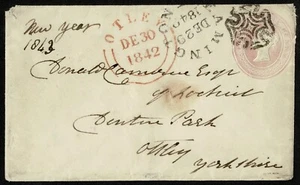 New Year
1843
OTLEY
DE 30
1842
DE 29
1842
Donald Cameron Esqr
of Lochiel
Denton Park
Otley
Yorkshire